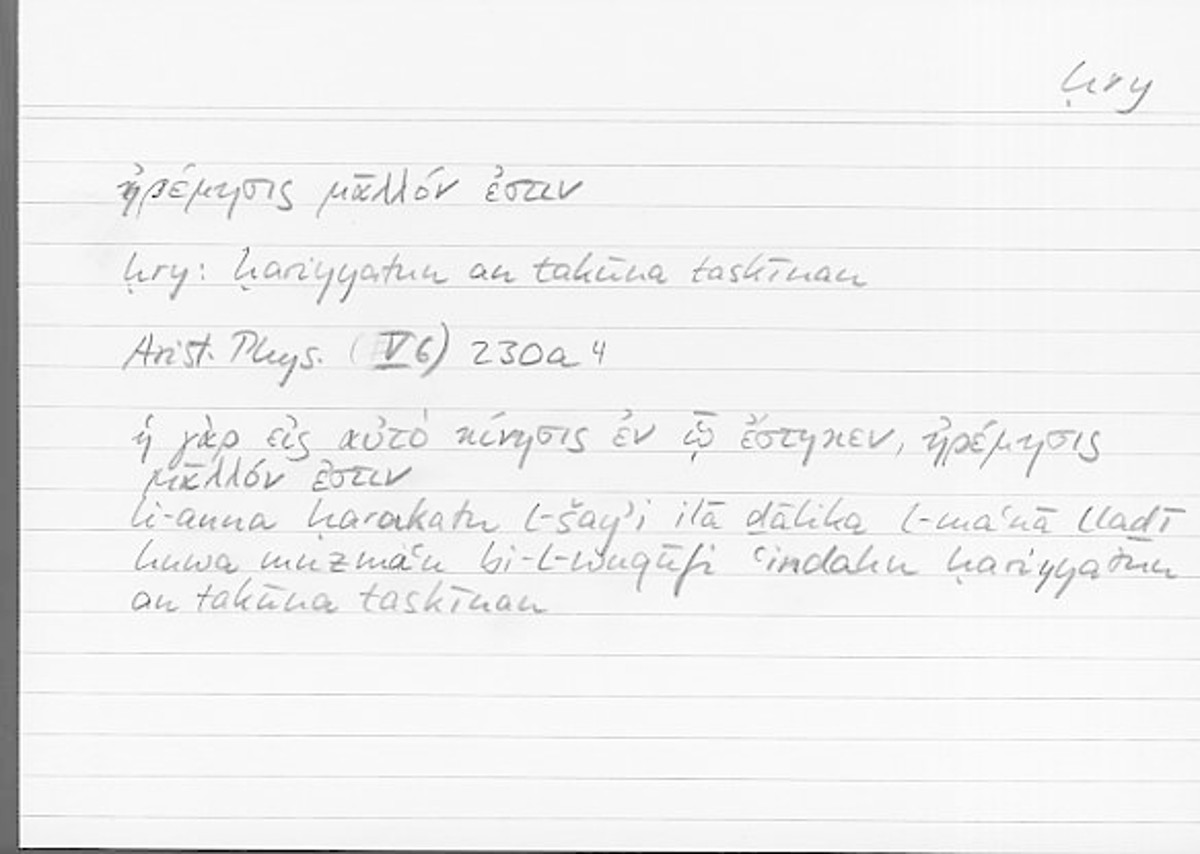 ḥry
ἠρέμησις μᾶλλόν ἐστιν
ḥry: ḥariyyatun an takūna taskīnan
Arist. Phys. (V 6) 230a 4
ἡ γὰρ εἰς αὐτὸ κίνησις ἐν ᾧ ἕστηκεν, ἠρέμησις
μᾶλλόν ἐστιν
li-anna ḥarakatu l-šayʾi ilā ḏālika l-maʿnā lladī
huwa muzmaʿu bi-l-wuqūfi ʿindahu ḥariyyatun
an takūna taskīnan